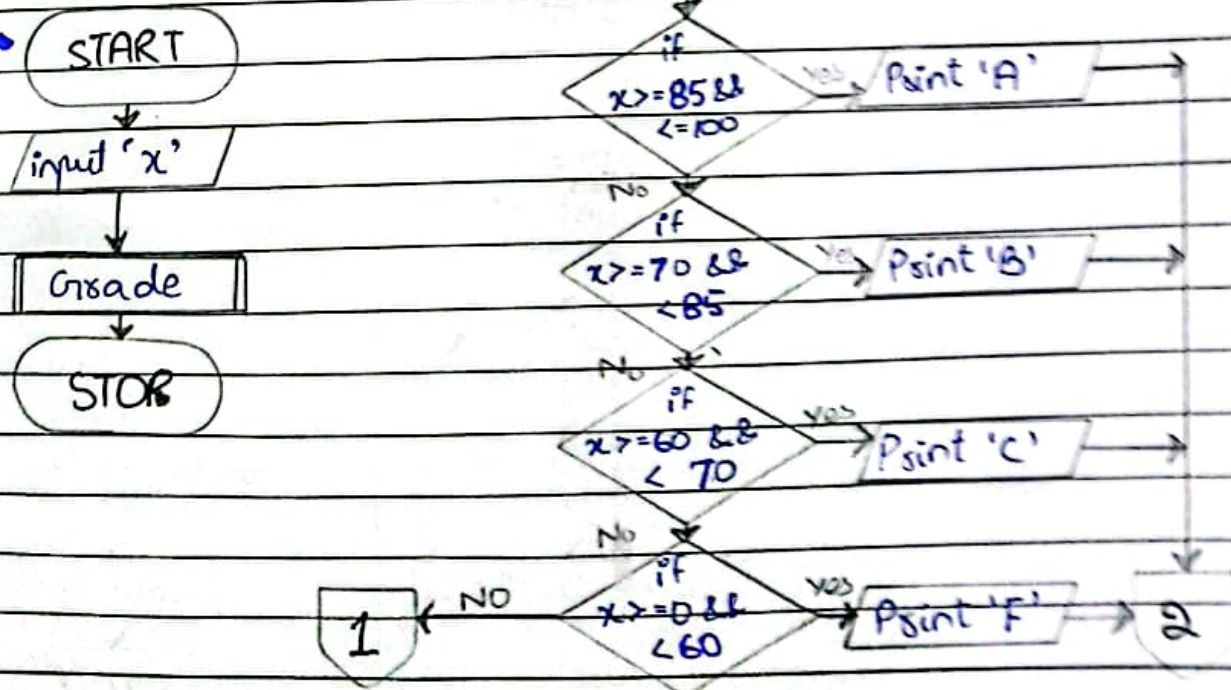 START
input 'x'
Grade
STOP
if
x>=85 &&
<=100
yes
Print 'A'
No
if
x>=70 &&
<85
yes
Print 'B'
No
if
x>=60 &&
< 70
yes
Print 'C'
No
if
x>=0 &&
<60
yes
Print 'F'
2
NO
1